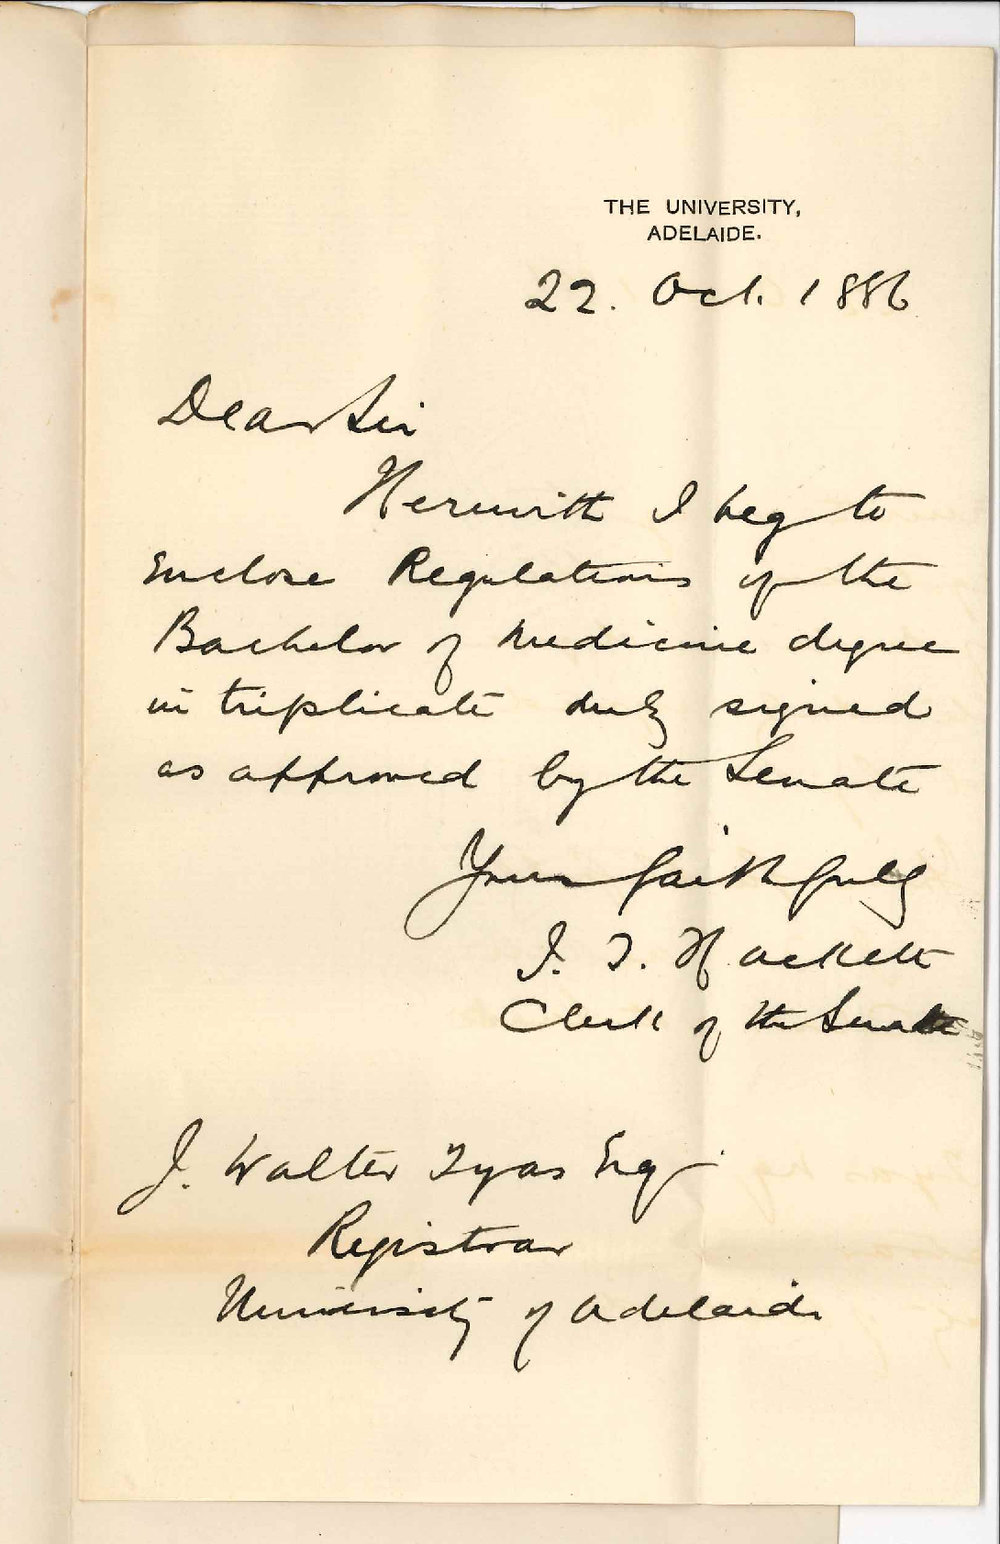 THE UNIVERSITY,
ADELAIDE.
22. Oct. 1886
Dear Sir
Herewith I beg to
enclose Regulations of the
Bachelor of Medicine degree
in triplicate duly signed
as approved by the Senate
Yours faithfully
J. T. Hackett
Clerk of the Senate
J. Walter Tyas Esq
Registrar
University of Adelaide